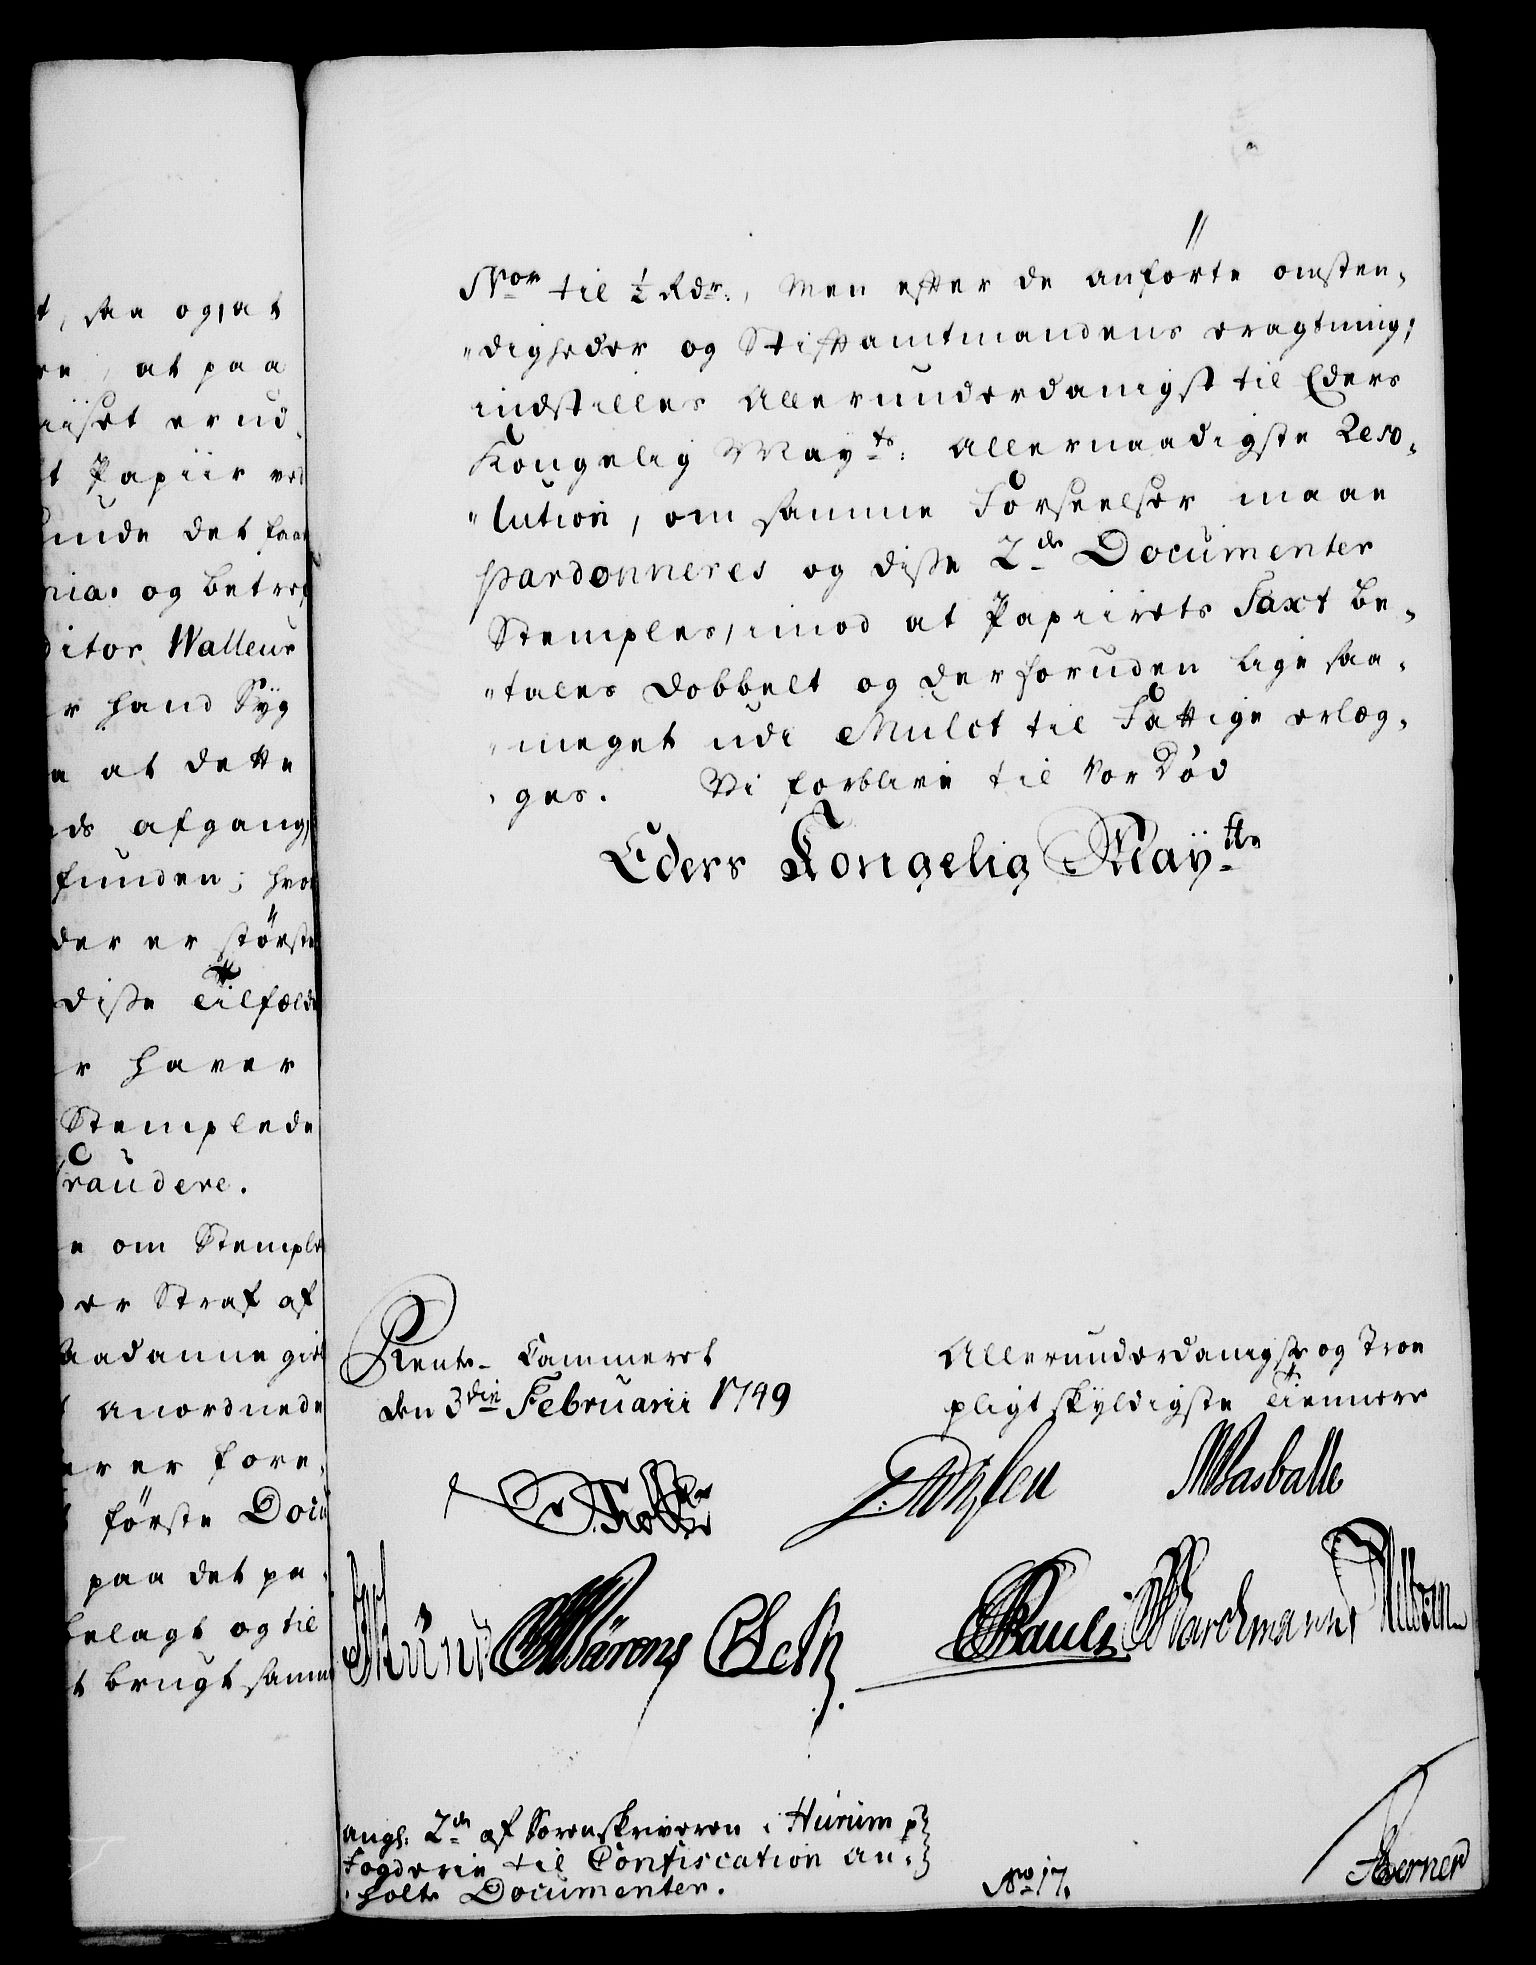 t, saa og, at
re, at paa
iiset er ud,
t Papiir ved
unde det faa
nia. og betref
ditor Walleur
r hand Syg
n at dette
ds afgang,
funden; hvor
der er störste
disse Tilfælde
r haver
Stemplede
fraudere.
e om Stemple
der Straf af
saadanne git
t anordnede
er er fore,
t förste Docu
paa det pa,
belagt og til
t brugt samm
Nor til ½ Rdr., Men efter de anförte omsten,
"digheder og Stiftamtmandens eragtning;
indstilles Allerunderdanigst til Eders
Kongelig Mayts: Allernaadigste Reso,
"lution, om samme Forseelser maae
pardonneres og disse 2de Documenter
Stemples, imod at Papiirets Taxt be,
"tales dobbelt og der foruden lige saa,
"meget udi Mulct til Fattige erlæg,
, ges. Vi forblive til Vor Död
Eders Kongelig Maytts
Rente-Cammeret
den 3die Februarii 1749
Allerunderdanigste og Troe
pligtskyldigste Tiennere
Pauli
angl: 2de af Sorenskriveren i Hurum
Fogderie til Confiscation an,
, holte Documenter.
No 17.
Berner